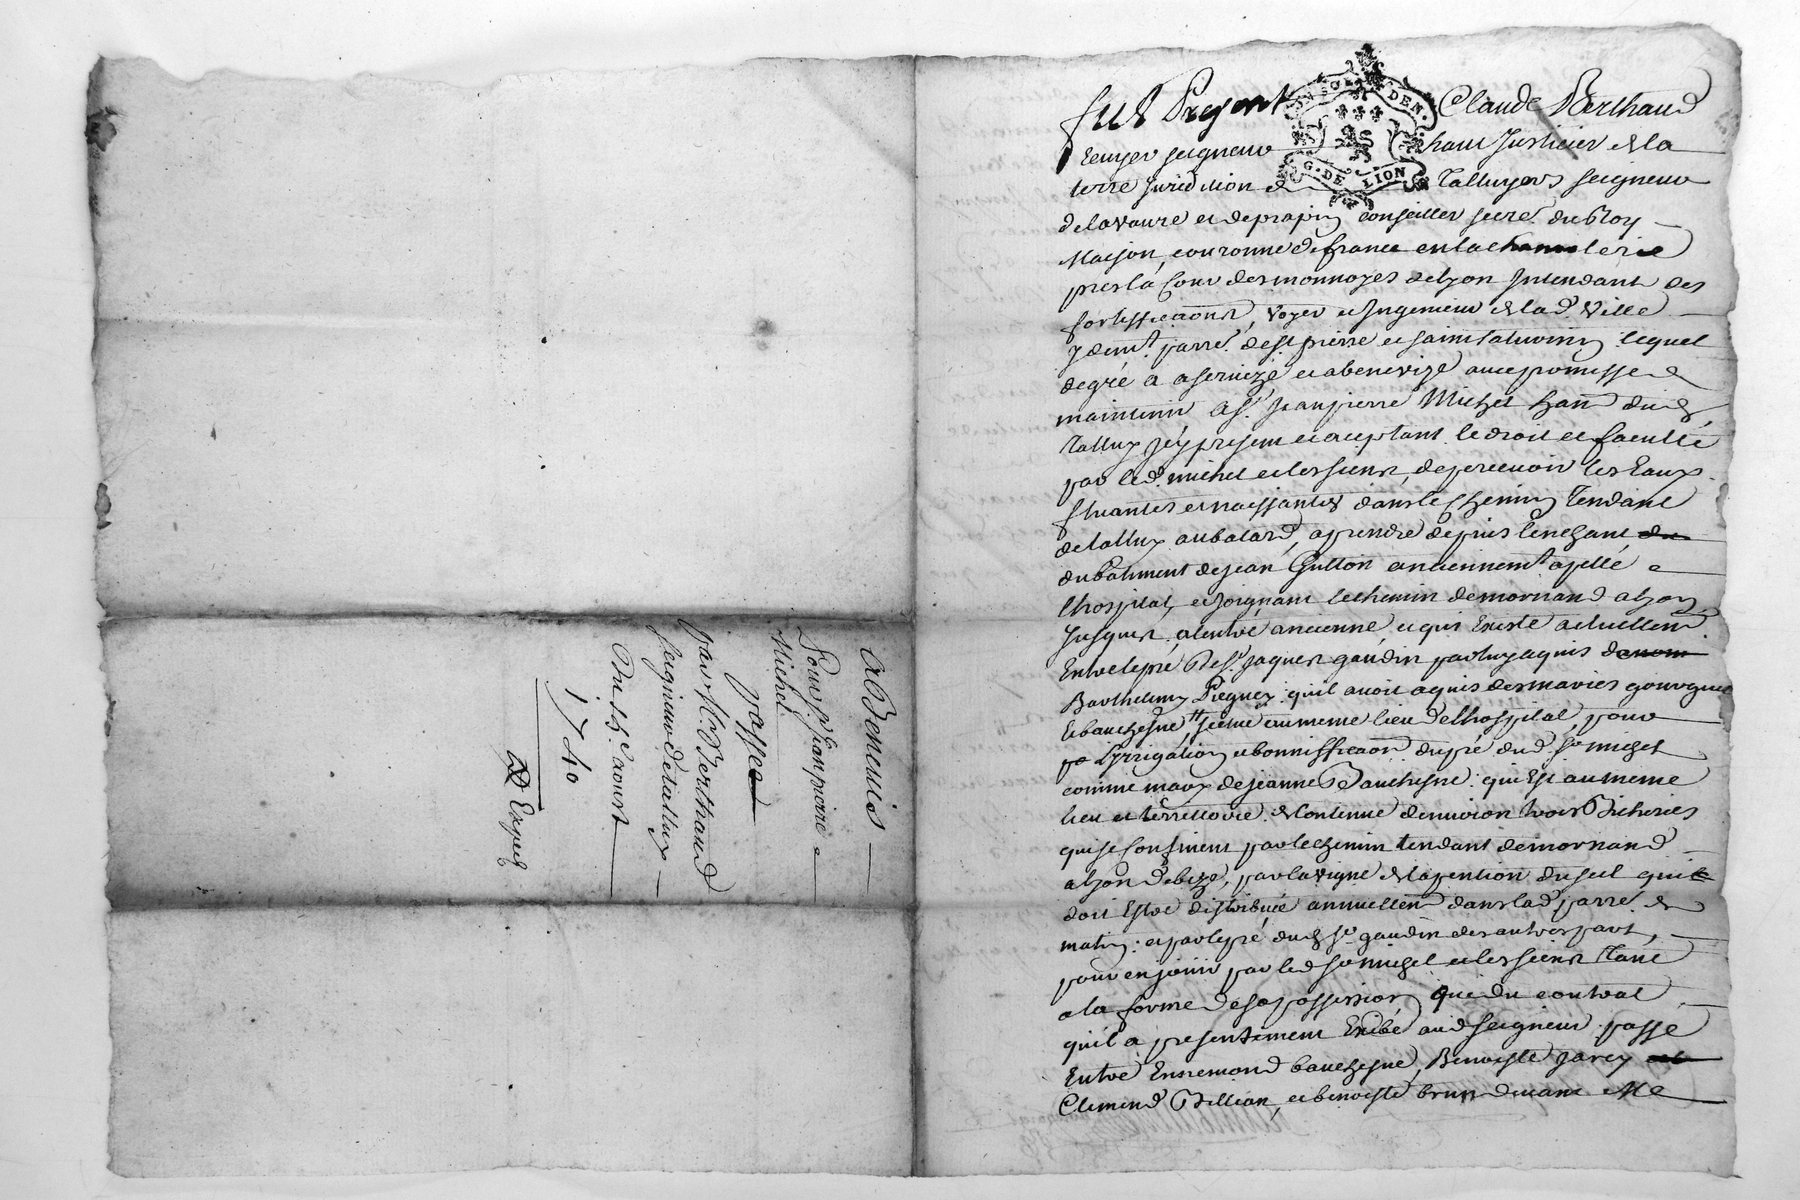 Abenevis
Pour Sr Jean pierre
Michel
passé
par Mr Berthaud
seigneur de tallux
Du 25e aoust
1740
Expedi
GEN. DE LION
fut Present Claude Berthaud
Ecuyer seigneur haut Justicier de la
terre Juridiction de Talluyers seigneur
de la vaure et de prapin conseiller secre. du Roy
Maison, couronne de france en la chancelerie
pres la Cour des monnoyes de Lyon Intendant des
fortifficaons, voyer et Ingenieur de lad. Ville
y demt. parre. de st pierre et saint saturnin lequel
de gré a aservizé et abenevizé avec promesse de
maintenir a Sr. Jean pierre Michel hant dud.
Tallux icy present et aceptant le droit et faculté
par led. michel et les siens, de percevoir les Eaux
fluantes et naissantes dans le chemin Tendant
de tallux au batard, a prendre depuis l'enchant
du batiment de jean Gullon anciennemt. apellé
l'hospital, et joignant le chemin de mornand a Lyon
Jusques a l'entré ancienne, et qui Existe actuellemt.
En tel pré de Sr. Jaques gaudin par luy aquis
Barthelemy Pregney qu'il avoit aquis des mariés
et bauchesne, scitué au meme lieu de l'hospital, pour
l'yrrigation et bonnifficaon du pré dud. Sr michel
comme mary de jeanne Bauchesne qui Est au meme
lieu et territtoire de Contenue d'environ trois Bicherées
qui se Confinent par le chemin tendant de mornand
a Lyon de bize, par la vigne de la pention du sel qui
doit Estre distribuée annuellemt. dans lad. parre. de
matin: et par le pré dud. Sr. gaudin des autres part,
pour en jouir par led. Sr michel et les siens Tant
a la forme de sa possession que du contrat
qu'il a presentement Exibé aud. seigneur passé
Entre Ennemond bauchesne, Benoiste jarcy
Clemend Billion, et benoiste brun devant Me